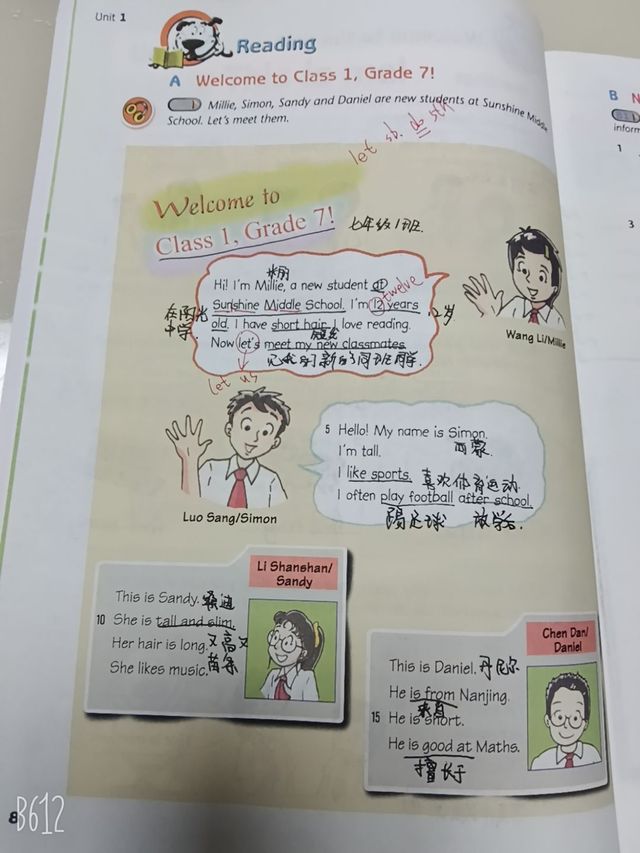 Unit 1
Reading
A Welcome to Class 1, Grade 7!
Millie, Simon, Sandy and Daniel are new students at Sunshine Middle
School. Let's meet them.
let sb. do sth
Welcome to
Class 1, Grade 7!
七年级1班.
米莉
Hi! I'm Millie, a new student at
twelve
Sunshine Middle School. I'm 12 years
在阳光
中学.
12岁
old. I have short hair. I love reading.
短发
Now let's meet my new classmates.
见我们新的同班同学.
let us
Wang Li/Millie
5 Hello! My name is Simon.
西蒙.
I'm tall.
I like sports. 喜欢体育运动
I often play football after school.
踢足球 放学后.
Luo Sang/Simon
Li Shanshan/
Sandy
This is Sandy. 桑迪
10 She is tall and slim.
Her hair is long. 又高又
苗条
She likes music.
Chen Dan/
Daniel
This is Daniel. 丹尼尔
He is from Nanjing.
来自
15 He is short.
He is good at Maths.
擅长于
B N
inform
1
3
8
B612